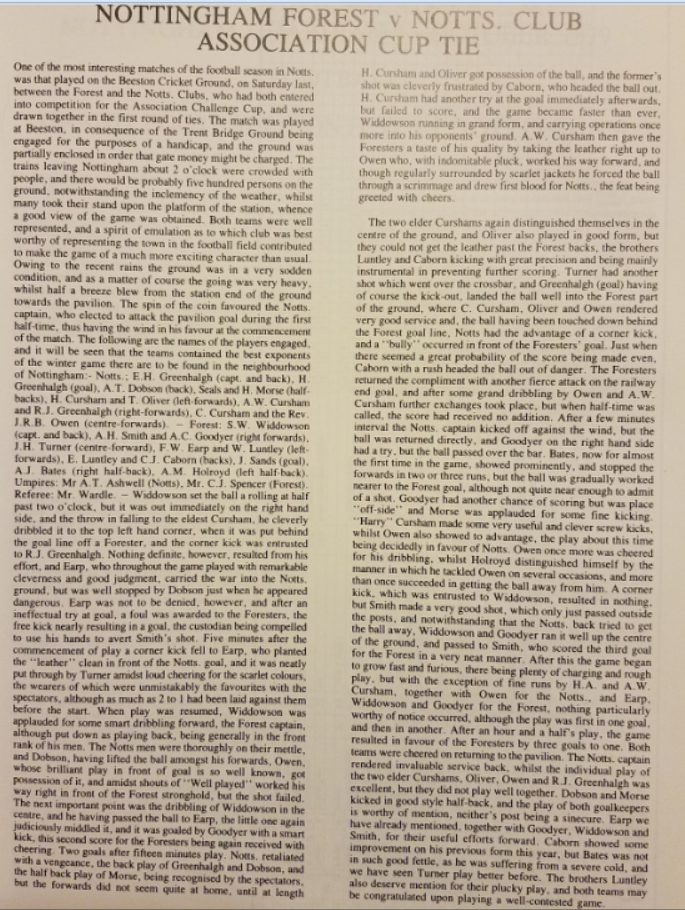 NOTTINGHAM FOREST v NOTTS. CLUB
ASSOCIATION CUP TIE
One of the most interesting matches of the football season in Notts.
was that played on the Beeston Cricket Ground, on Saturday last,
between the Forest and the Notts. Clubs, who had both entered
into competition for the Association Challenge Cup, and were
drawn together in the first round of ties. The match was played
at Beeston, in consequence of the Trent Bridge Ground being
engaged for the purposes of a handicap, and the ground was
partially enclosed in order that gate money might be charged. The
trains leaving Nottingham about 2 o'clock were crowded with
people, and there would be probably five hundred persons on the
ground, notwithstanding the inclemency of the weather, whilst
many took their stand upon the platform of the station, whence
a good view of the game was obtained. Both teams were well
represented, and a spirit of emulation as to which club was best
worthy of representing the town in the football field contributed
to make the game of a much more exciting character than usual.
Owing to the recent rains the ground was in a very sodden
condition, and as a matter of course the going was very heavy,
whilst half a breeze blew from the station end of the ground
towards the pavilion. The spin of the coin favoured the Notts.
captain, who elected to attack the pavilion goal during the first
half-time, thus having the wind in his favour at the commencement
of the match. The following are the names of the players engaged,
and it will be seen that the teams contained the best exponents
of the winter game there are to be found in the neighbourhood
of Nottingham:- Notts.; E.H. Greenhalgh (capt. and back), H.
Greenhalgh (goal), A.T. Dobson (back), Seals and H. Morse (half-
backs), H. Cursham and T. Oliver (left-forwards), A.W. Cursham
and R.J. Greenhalgh (right-forwards), C. Cursham and the Rev.
J.R.B. Owen (centre-forwards). – Forest: S.W. Widdowson
(capt. and back), A.H. Smith and A.C. Goodyer (right forwards),
J.H. Turner (centre-forward), F.W. Earp and W. Luntley (left-
forwards), E. Luntley and C.J. Caborn (backs), J. Sands (goal),
A.J. Bates (right half-back), A.M. Holroyd (left half-back).
Umpires: Mr A.T. Ashwell (Notts), Mr. C.J. Spencer (Forest).
Referee: Mr. Wardle. – Widdowson set the ball a rolling at half
past two o'clock, but it was out immediately on the right hand
side, and the throw in falling to the eldest Cursham, he cleverly
dribbled it to the top left hand corner, when it was put behind
the goal line off a Forester, and the corner kick was entrusted
to R.J. Greenhalgh. Nothing definite, however, resulted from his
effort, and Earp, who throughout the game played with remarkable
cleverness and good judgment, carried the war into the Notts.
ground, but was well stopped by Dobson just when he appeared
dangerous. Earp was not to be denied, however, and after an
ineffectual try at goal, a foul was awarded to the Foresters, the
free kick nearly resulting in a goal, the custodian being compelled
to use his hands to avert Smith's shot. Five minutes after the
commencement of play a corner kick fell to Earp, who planted
the "leather" clean in front of the Notts. goal, and it was neatly
put through by Turner amidst loud cheering for the scarlet colours,
the wearers of which were unmistakably the favourites with the
spectators, although as much as 2 to 1 had been laid against them
before the start. When play was resumed, Widdowson was
applauded for some smart dribbling forward, the Forest captain,
although put down as playing back, being generally in the front
rank of his men. The Notts men were thoroughly on their mettle,
and Dobson, having lifted the ball amongst his forwards, Owen,
whose brilliant play in front of goal is so well known, got
possession of it, and amidst shouts of "Well played" worked his
way right in front of the Forest stronghold, but the shot failed.
The next important point was the dribbling of Widdowson in the
centre, and he having passed the ball to Earp, the little one again
judiciously middled it, and it was goaled by Goodyer with a smart
kick, this second score for the Foresters being again received with
cheering. Two goals after fifteen minutes play. Notts. retaliated
with a vengeance, the back play of Greenhalgh and Dobson, and
the half back play of Morse, being recognised by the spectators,
but the forwards did not seem quite at home, until at length
H. Cursham and Oliver got possession of the ball, and the former's
shot was cleverly frustrated by Caborn, who headed the ball out.
H. Cursham had another try at the goal immediately afterwards,
but failed to score, and the game became faster than ever,
Widdowson running in grand form, and carrying operations once
more into his opponents' ground. A.W. Cursham then gave the
Foresters a taste of his quality by taking the leather right up to
Owen who, with indomitable pluck, worked his way forward, and
though regularly surrounded by scarlet jackets he forced the ball
through a scrimmage and drew first blood for Notts., the feat being
greeted with cheers.
The two elder Curshams again distinguished themselves in the
centre of the ground, and Oliver also played in good form, but
they could not get the leather past the Forest backs, the brothers
Luntley and Caborn kicking with great precision and being mainly
instrumental in preventing further scoring. Turner had another
shot which went over the crossbar, and Greenhalgh (goal) having
of course the kick-out, landed the ball well into the Forest part
of the ground, where C. Cursham, Oliver and Owen rendered
very good service and, the ball having been touched down behind
the Forest goal line, Notts had the advantage of a corner kick,
and a "bully" occurred in front of the Foresters' goal. Just when
there seemed a great probability of the score being made even,
Caborn with a rush headed the ball out of danger. The Foresters
returned the compliment with another fierce attack on the railway
end goal, and after some grand dribbling by Owen and A.W.
Cursham further exchanges took place, but when half-time was
called, the score had received no addition. After a few minutes
interval the Notts. captain kicked off against the wind, but the
ball was returned directly, and Goodyer on the right hand side
had a try, but the ball passed over the bar. Bates, now for almost
the first time in the game, showed prominently, and stopped the
forwards in two or three runs, but the ball was gradually worked
nearer to the Forest goal, although not quite near enough to admit
of a shot. Goodyer had another chance of scoring but was place
"off-side" and Morse was applauded for some fine kicking.
"Harry" Cursham made some very useful and clever screw kicks,
whilst Owen also showed to advantage, the play about this time
being decidedly in favour of Notts. Owen once more was cheered
for his dribbling, whilst Holroyd distinguished himself by the
manner in which he tackled Owen on several occasions, and more
than once succeeded in getting the ball away from him. A corner
kick, which was entrusted to Widdowson, resulted in nothing,
but Smith made a very good shot, which only just passed outside
the posts, and notwithstanding that the Notts. back tried to get
the ball away, Widdowson and Goodyer ran it well up the centre
of the ground, and passed to Smith, who scored the third goal
for the Forest in a very neat manner. After this the game began
to grow fast and furious, there being plenty of charging and rough
play, but with the exception of fine runs by H.A. and A.W.
Cursham, together with Owen for the Notts., and Earp,
Widdowson and Goodyer for the Forest, nothing particularly
worthy of notice occurred, although the play was first in one goal,
and then in another. After an hour and a half's play, the game
resulted in favour of the Foresters by three goals to one. Both
teams were cheered on returning to the pavilion. The Notts. captain
rendered invaluable service back, whilst the individual play of
the two elder Curshams, Oliver, Owen and R.J. Greenhalgh was
excellent, but they did not play well together. Dobson and Morse
kicked in good style half-back, and the play of both goalkeepers
is worthy of mention, neither's post being a sinecure. Earp we
have already mentioned, together with Goodyer, Widdowson and
Smith, for their useful efforts forward. Caborn showed some
improvement on his previous form this year, but Bates was not
in such good fettle, as he was suffering from a severe cold, and
we have seen Turner play better before. The brothers Luntley
also deserve mention for their plucky play, and both teams may
be congratulated upon playing a well-contested game.